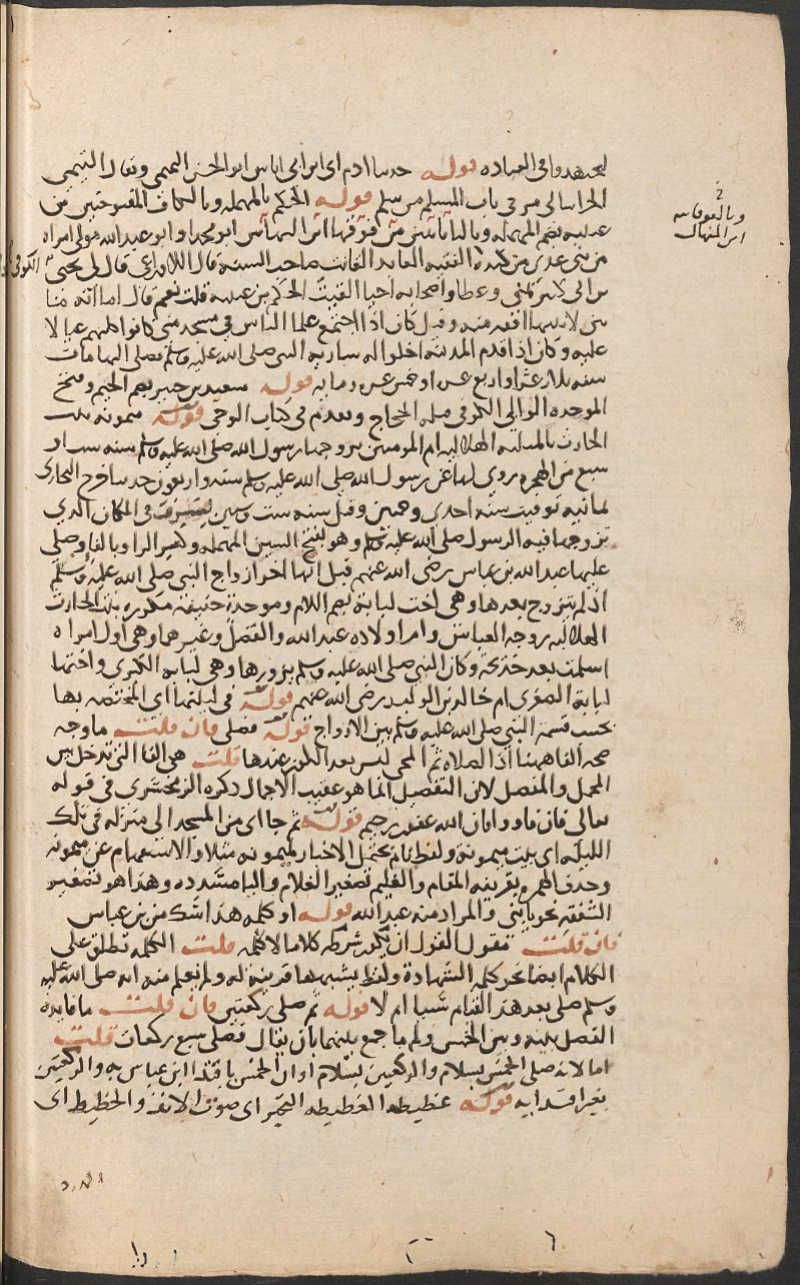 ليجتهدوا في العبادة قوله حدثنا ادم اى ابن ابي اياس ابو الحسن التميمي ويقال التيمي
الخراساني مر في باب المسلم من سلم قوله الحكم بالمهملة وبالكاف المفتوحتين بن
عتيبة بضم المهملة وبالتا باثنتين من فوقها ابن النهاس ابو محمد او ابو عبد الله مولى امراة
من بني عدي من كندة الفقيه العابد القانت صاحب السنة قال الاوزاعي قال لي يحيى
بن ابي كثير بمنى وعطا واصحابه احيا القيت الحكم بن عتيبة قلت نعم قال اما انه ما
بين لابتيها افقه منه وقيل كان اذا اجتمع علما الناس في مسجد منى كانوا كلهم عيالا
عليه وكان اذا قدم المدينة اخلوا له سارية النبي صلى الله عليه وسلم فصلى اليها مات
سنة ثلاث عشر او اربع عشر او خمس عشر ومايه قوله سعيد بن جبير بضم الجيم وفتح
الموحدة الوالبي الكوفي قتله الحجاج وتقدم في كتاب الوحي قوله ميمونة بنت
الحارث بالمثلثة الهلالية ام المومنين تزوجها رسول الله صلى الله عليه وسلم سنة ست او
سبع من الهجرة روي لها عن رسول الله صلى الله عليه وسلم ستة واربعون حديثا خرج البخاري
ثمانية توفيت سنة احدى وخمسين وقيل سنة ست وستين بسرف في المكان الذي
تزوجها فيه الرسول صلى الله عليه وسلم وهو بفتح السين المهملة وكسر الرا وبالفا وصلى
عليها عبد الله بن عباس رضي الله عنهم قيل انها اخر ازواج النبي صلى الله عليه وسلم
اذ لم يتزوج بعدها وهي اخت لبابة بضم اللام وموحدة خفيفة مكررة بنت الحارث
الهلالية زوجة العباس وام اولاده عبد الله والفضل وغيرهما وهي اول امراة
اسلمت بعد خديجة وكان النبي صلى الله عليه وسلم يزورها وهي لبابة الكبرى واختها
لبابة الصغرى ام خالد بن الوليد رضي الله عنهم قوله في ليلتها اى المختصة بها
بحسب قسمة النبي صلى الله عليه وسلم بين الازواج قوله فصلى فان قلت ما وجه
صحة الفا ههنا اذ الصلاة ثم المجي ليس بعد الكون عندها قلت هي الفا التي تدخل بين
المجمل والمفصل لان التفصيل انما هو عقيب الاجمال ذكره الزمخشري في قوله
تعالى فان فاووا فان الله غفور رحيم قوله ثم جا اى من المسجد الى منزله في تلك
الليلة اى بيت ميمونة ولفظ نام يحتمل الاخبار لميمونة مثلا والاستفهام عن ميمونة
وحذف الهمزة بقرينة المقام والغليم تصغير الغلام واليا مشددة وهذا هو تصغير
الشفقة نحو يا بني والمراد منه عبد الله قوله او كلمة هذا شك من بن عباس
فان قلت مقول القول ان يكون شرطه كلاما لا كلمة قلت الكلمة تطلق على
الكلام ايضا نحو كلمة الشهادة ولفظ يشبهها قرينة له ولم نعلم منه انه صلى الله عليه
وسلم صلى بعد هذا القيام شيا ام لا قوله ثم صلى ركعتين فان قلت ما فايدة
الفصل بينه وبين الخمس ولم ما جمع بينهما بان يقال فصلى سبع ركعات قلت
اما لانه صلى الخمس بسلام والركعتين بسلام او ان الخمس باقتدا ابن عباس به والركعتين
بغير اقتدايه قوله غطيطه الغطيط النخير اى صوت الانف والخطيط اى
وبالموقانية
ابن المنهال
الكوفي